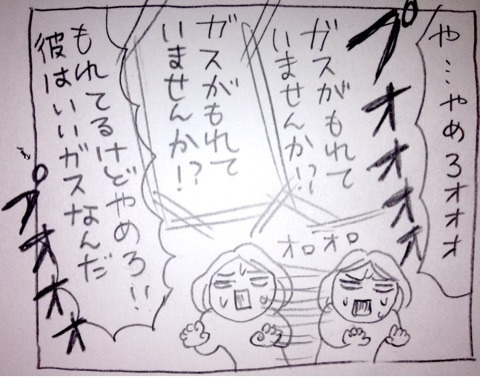 や…やめろオオオ
プオオオオ
ガスがもれて
いませんか!?
ガスがもれて
いませんか!?
オロオロ
もれてるけどやめろ!!
彼はいいガスなんだ
プオオオオ